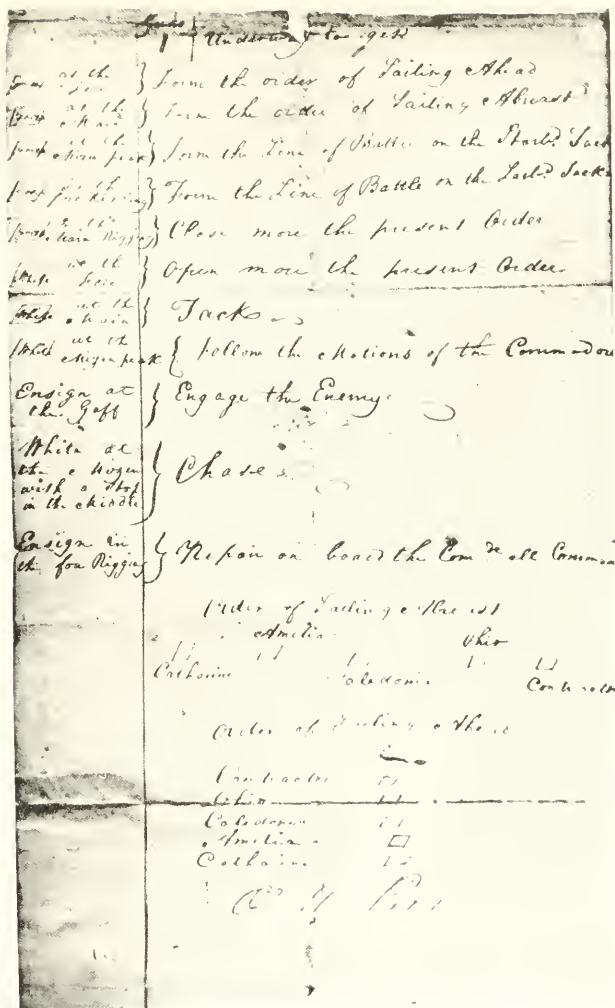 Guns
1 Underway to get
at the } Form the order of Sailing Ahead
at the Main } Form the order of Sailing Abreast
at the Mizen peak } Form the Line of Battle on the Starbd Tack
at the fore Rigging } Form the Line of Battle on the Larbd Tack
Main Rigging } Close more the present Order
White at the fore } Open more the present Order
White at the Main } Tack
White at the Mizen peak } follow the Motions of the Commodore
Ensign at the Gaff } Engage the Enemy
White at the Mizen with a Stop in the Middle } Chase
Ensign in the fore Rigging } Repair on board the Com all
Order of Sailing Abreast
Amelia Ohio
Catharine Caledonia Contractor
Order of Sailing Ahead
Contractor
Ohio
Caledonia
Amelia
Catharine